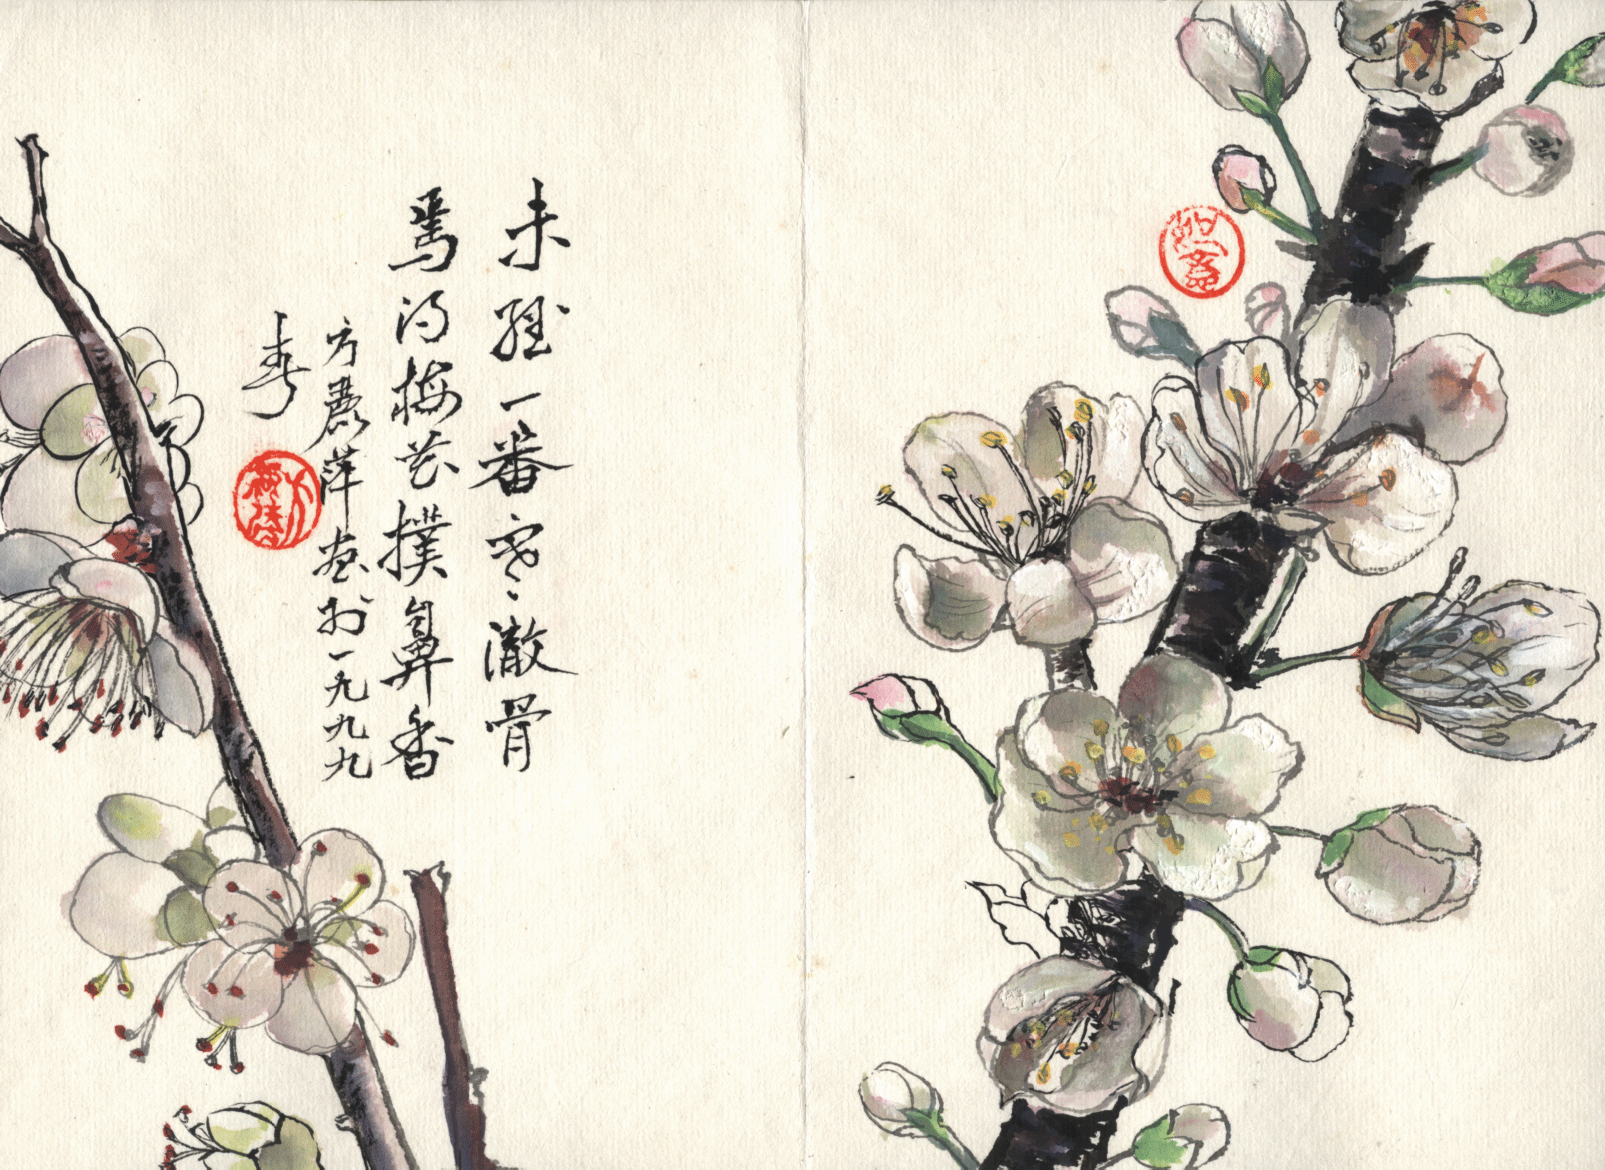 未經一番寒澈骨
焉得梅花撲鼻香
方麗萍畫於一九九九
春